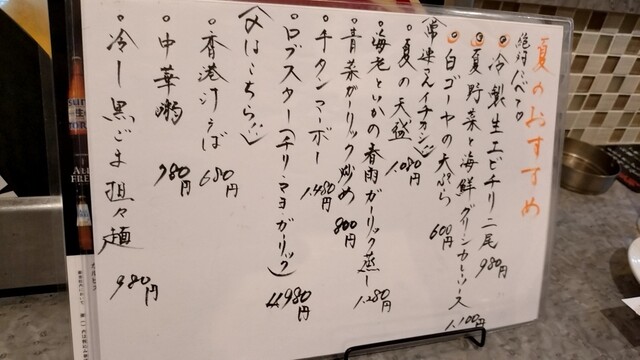 夏のおすすめ
絶対たべて♡
冷製生エビチリ二尾 980円
夏野菜と海鮮グリンカレーソース 1.100円
白ゴーヤの天ぷら 600円
常連さんイチオシ
夏の天盛 1.080円
海老といかの春雨ガーリック蒸し 1.280円
青菜ガーリック炒め 800円
チタンマーボー 1.480円
ロブスター(チリ・マヨ・ガーリック) 4.980円
〆はこちら
香港汁そば 680円
中華粥 780円
冷し黒ごま担々麺 980円